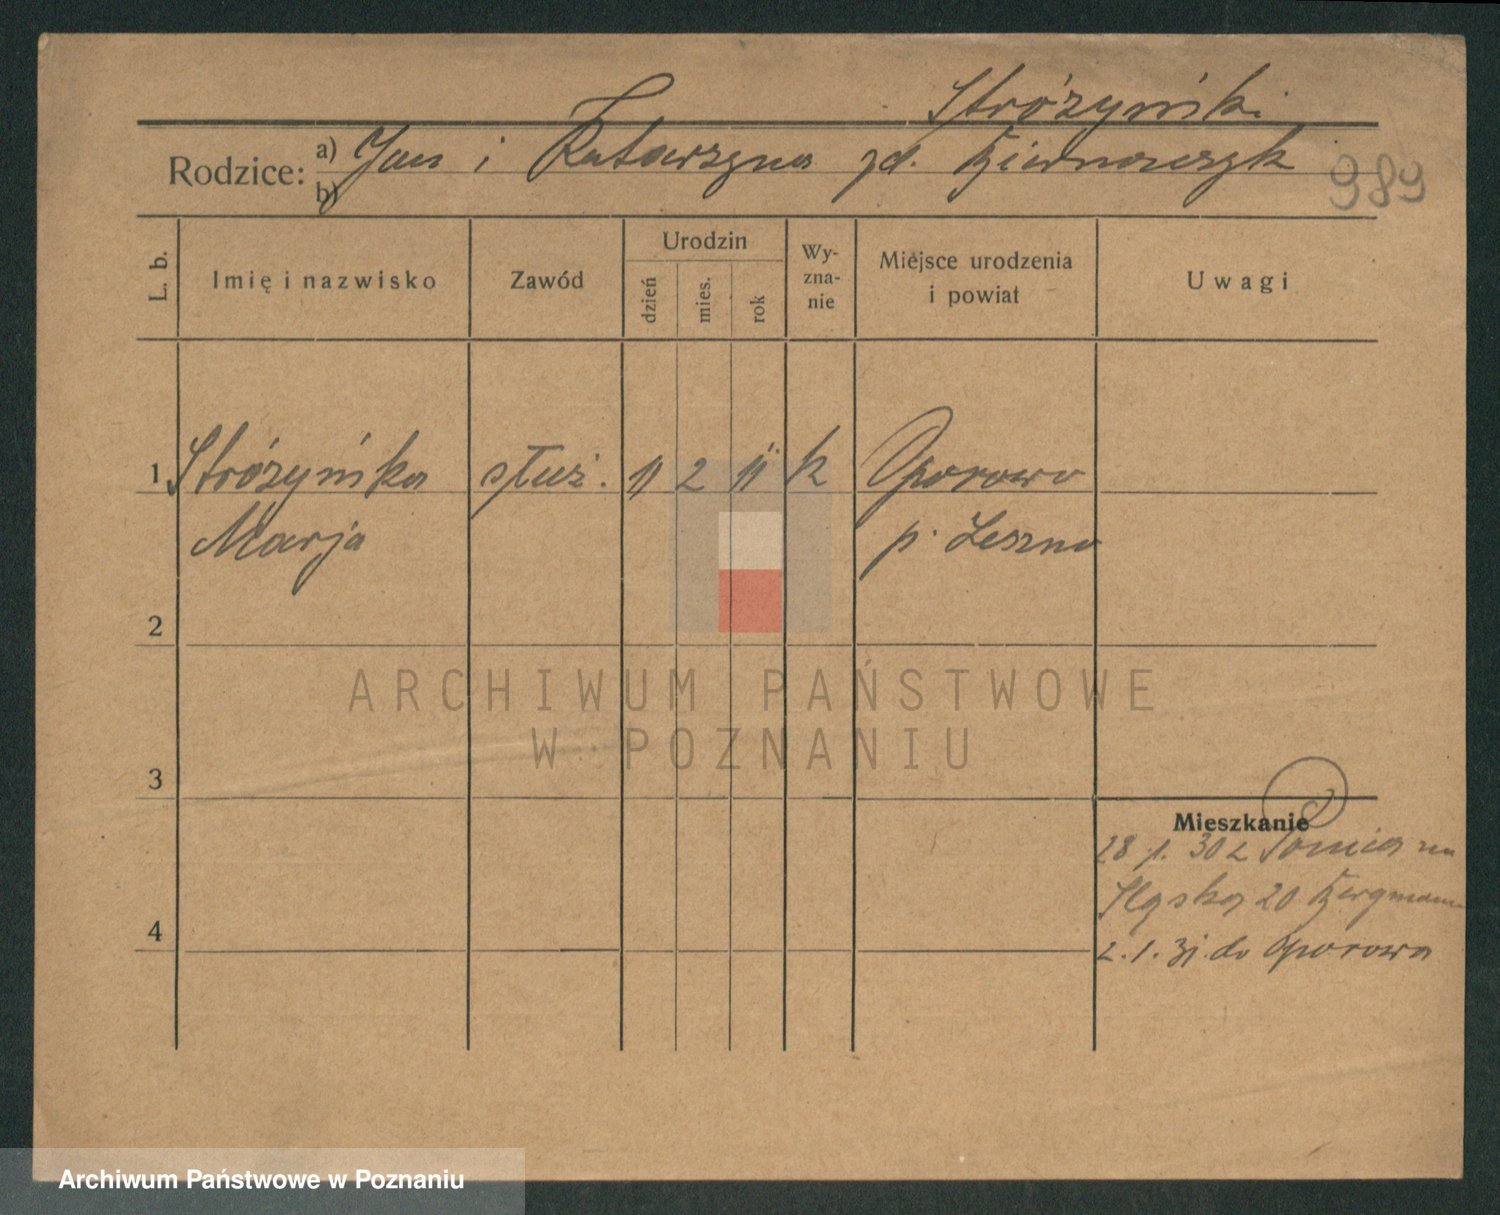 Stróżyński
Rodzice: a) Jan i Katarzyna zd. Biernaczyk
b)
989
L. b.
Imię i nazwisko
Zawód
Urodzin
dzień
mies.
rok
Wy-
zna-
nie
Miejsce urodzenia
i powiat
Uwagi
1 Stróżyńska służ. 11 2 11 k Oporowo
Marja p. Leszno
2
ARCHIWUM PAŃSTWOWE
W POZNANIU
3
Mieszkanie
28 30 z na
Śląską 20 Bergmann
2. 1. 31. do Oporowa
4
Archiwum Państwowe w Poznaniu